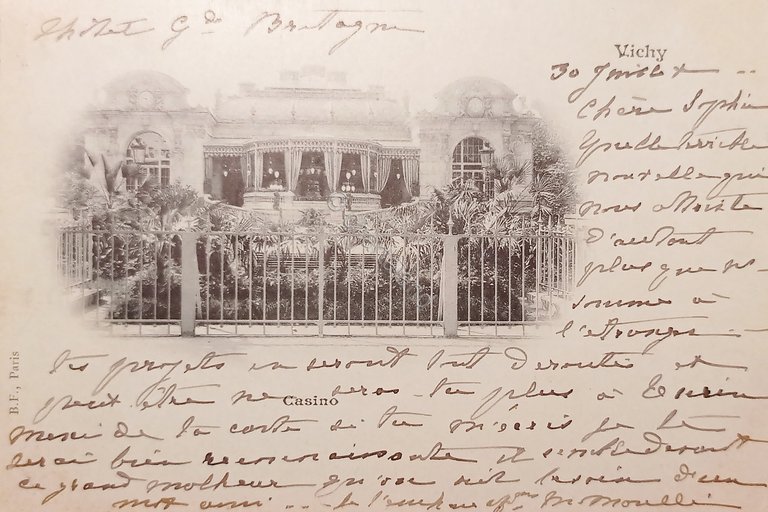 Hôtel Gde Bretagne
Vichy
30 Juillet
Chère Sophie
Quelle terrible
nouvelle qui
nous attriste
d'autant
plus que ns
sommes à
l'étranger
tes projets en seront tout déroutés et
peut être ne seras-tu plus à Turin
merci de ta carte si tu m'écris je te
serai bien reconnaissante il semble devant
ce grand malheur qu'on ait besoin d'un
mot ami
Casino
B.F., Paris